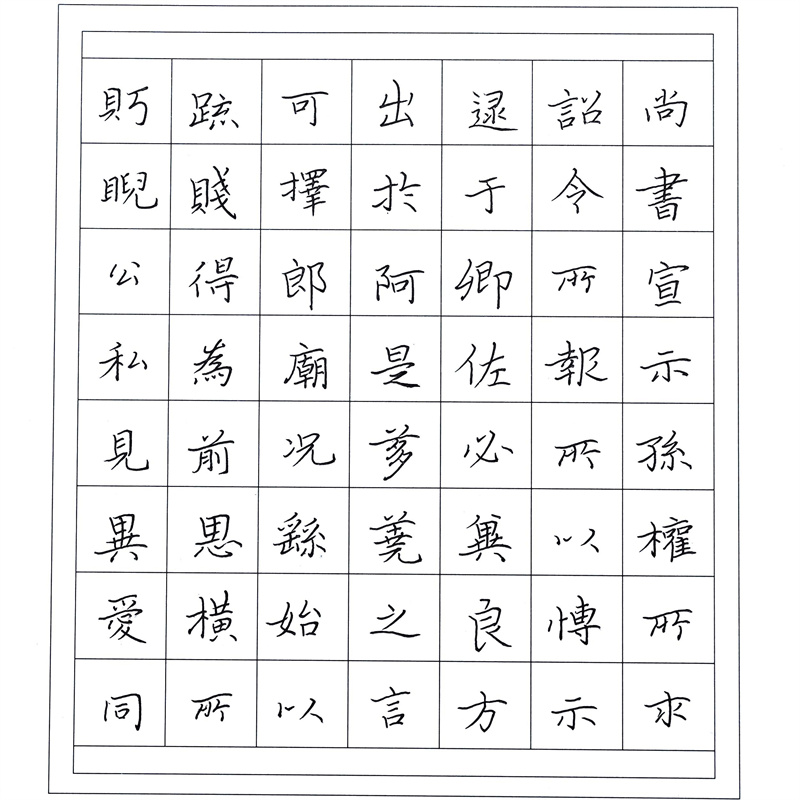 尚書宣示孫權所求
詔令所報所以愽示
逮于卿佐必冀良方
出於阿是芻蕘之言
可擇郎廟況繇始以
疏賤得為前恩橫所
眄睨公私見異愛同